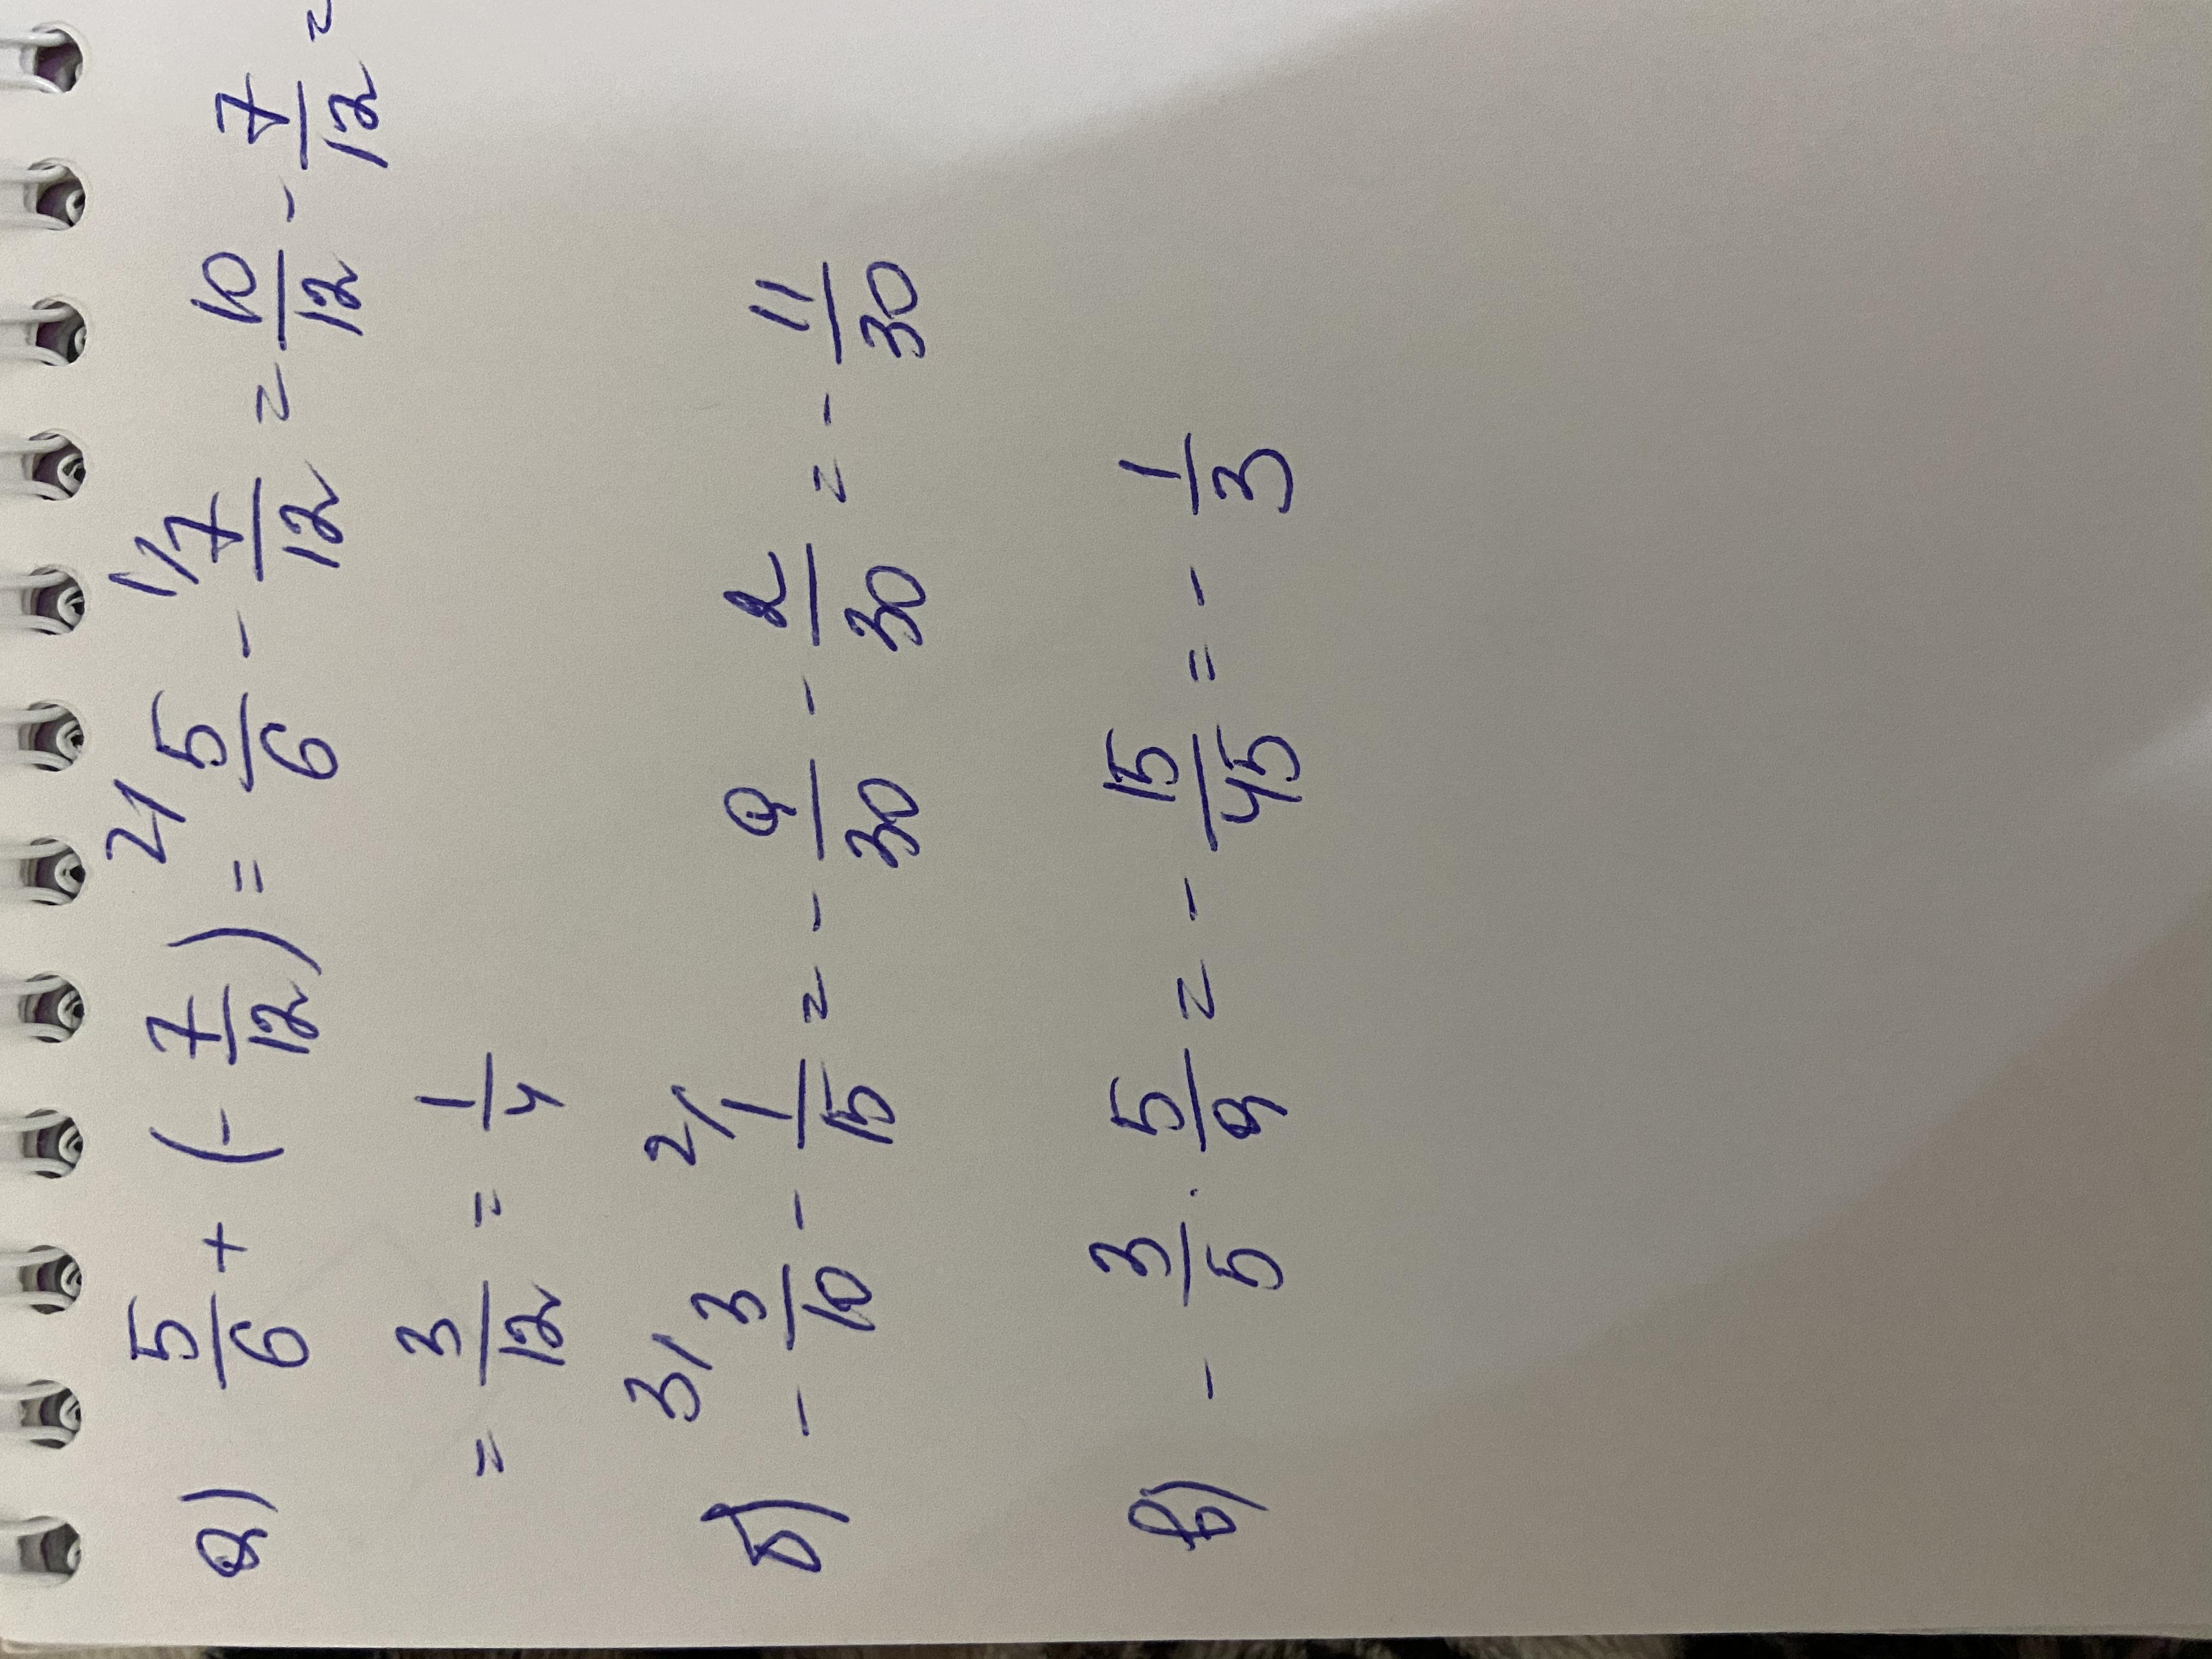 а) 5/6 + (- 7/12) = 2/ 5/6 - 1/ 7/12 = 10/12 - 7/12 =
= 3/12 = 1/4
б) - 3/ 3/10 - 2/ 1/15 = - 9/30 - 2/30 = - 11/30
в) - 3/5 · 5/9 = - 15/45 = - 1/3